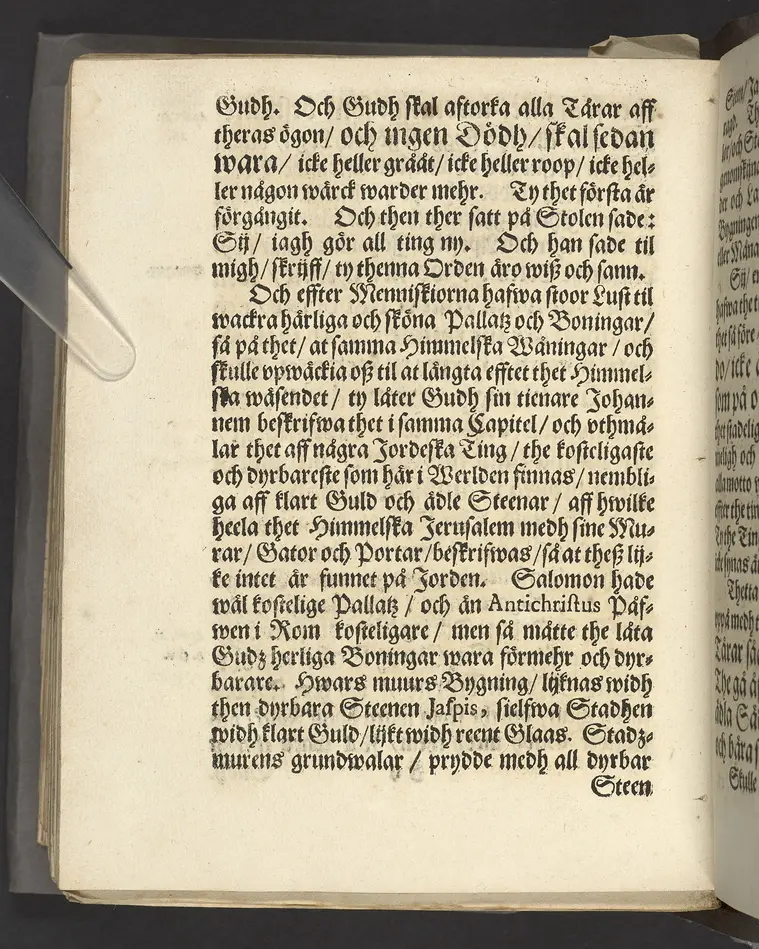 Gudh. Och Gudh skal aftorka alla Tårar aff
theras ögon/ och ingen Dödh/ skal sedan
wara/ icke heller gråät/ icke heller roop/ icke hel-
ler någon wärck warder mehr. Ty thet första är
förgångit. Och then ther satt på Stolen sade:
Sij/ iagh gör all ting ny. Och han sade til
migh/ skrijff/ ty thenna Orden äro wiß och sann.
Och effter Menniskiorna hafwa stoor Lust til
wackra härliga och sköna Pallatz och Boningar/
så på thet/ at samma Himmelska Wåningar / och
skulle vpwäckia oß til at längta efftet thet Himmel-
ska wäsendet/ ty låter Gudh sin tienare Johan-
nem beskrifwa thet i samma Capitel/ och vthmå-
lar thet aff några Jordeska Ting/ the kosteligaste
och dyrbareste som här i Werlden finnas/ nembli-
ga aff klart Guld och ädle Steenar / aff hwilke
heela thet Himmelska Jerusalem medh sine Mu-
rar/ Gator och Portar/beskrifwas/så at theß lij-
ke intet är funnet på Jorden. Salomon hade
wäl kostelige Pallatz / och än Antichristus Påf-
wen i Rom kosteligare/ men så måtte the låta
Gudz herliga Boningar wara förmehr och dyr-
barare. Hwars muurs Bygning/ lijknas widh
then dyrbara Steenen Jaspis, sielfwa Stadhen
widh klart Guld/lijkt widh reent Glaas. Stadz-
murens grundwalar / prydde medh all dyrbar
Steen